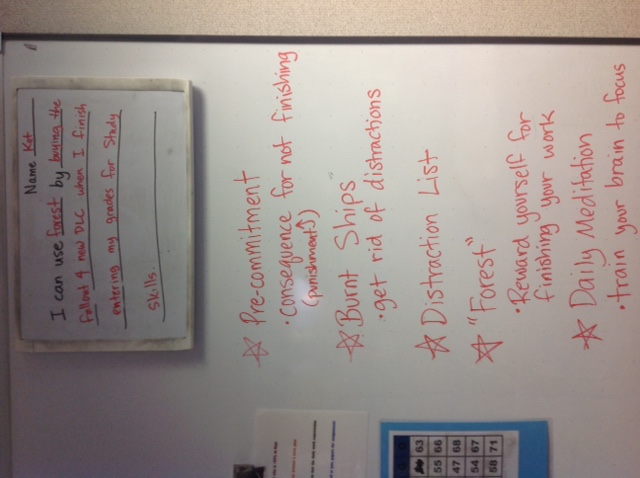 Name Kat
I can use forest by buying the
Fallout 4 new DLC when I finish
entering my grades for Study
Skills
☆ Pre-commitment
• consequence for not finishing
(punishment↑)
☆ "Burnt Ships"
• get rid of distractions
☆ Distraction List
☆ "Forest"
• Reward yourself for
finishing your work
☆ Daily Meditation
• train your brain to focus
63
55 66
47 68
54 67
58 71